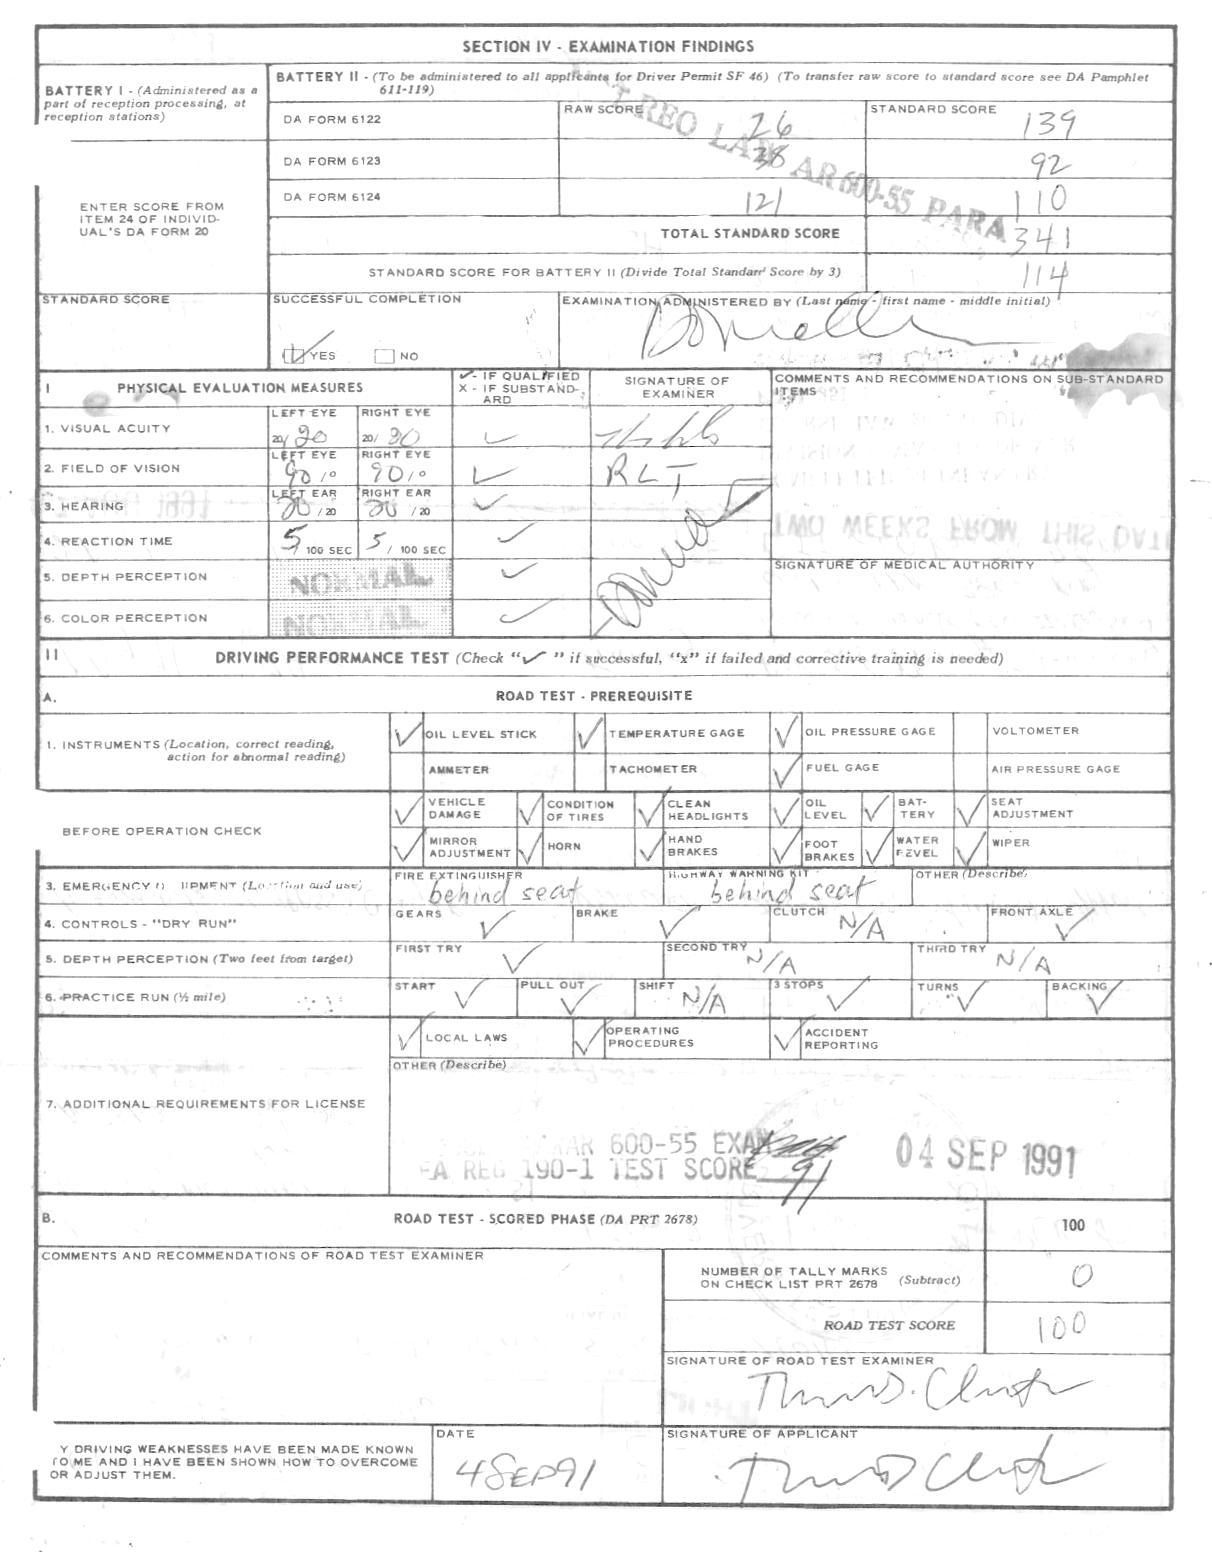 SECTION IV - EXAMINATION FINDINGS
BATTERY I - (Administered as a part of reception processing, at reception stations)
BATTERY II - (To be administered to all applicants for Driver Permit SF 46) (To transfer raw score to standard score see DA Pamphlet
611-119)
DA FORM 6122 RAW SCORE 26 STANDARD SCORE 139
DA FORM 6123 38 92
ENTER SCORE FROM ITEM 24 OF INDIVID-UAL'S DA FORM 20
DA FORM 6124 121 110
AR 600-55 PARA
TOTAL STANDARD SCORE 341
STANDARD SCORE FOR BATTERY II (Divide Total Standard Score by 3) 114
STANDARD SCORE SUCCESSFUL COMPLETION EXAMINATION ADMINISTERED BY (Last name - first name - middle initial)
YES NO
I PHYSICAL EVALUATION MEASURES ✓ - IF QUALIFIED X - IF SUBSTAND-ARD SIGNATURE OF EXAMINER COMMENTS AND RECOMMENDATIONS ON SUB-STANDARD ITEMS
1. VISUAL ACUITY LEFT EYE 20/20 RIGHT EYE 20/ ✓
2. FIELD OF VISION LEFT EYE 90/° RIGHT EYE 90/° ✓ RLT
3. HEARING LEFT EAR 20/20 RIGHT EAR 20/20 ✓
TWO WEEKS FROM THIS DATE
4. REACTION TIME 5/100 SEC 5/100 SEC ✓
5. DEPTH PERCEPTION NORMAL ✓ SIGNATURE OF MEDICAL AUTHORITY
6. COLOR PERCEPTION NORMAL ✓
II DRIVING PERFORMANCE TEST (Check "✓" if successful, "x" if failed and corrective training is needed)
A. ROAD TEST - PREREQUISITE
1. INSTRUMENTS (Location, correct reading, action for abnormal reading)
✓ OIL LEVEL STICK ✓ TEMPERATURE GAGE ✓ OIL PRESSURE GAGE VOLTOMETER
AMMETER TACHOMETER ✓ FUEL GAGE AIR PRESSURE GAGE
BEFORE OPERATION CHECK
✓ VEHICLE DAMAGE ✓ CONDITION OF TIRES ✓ CLEAN HEADLIGHTS ✓ OIL LEVEL ✓ BAT-TERY ✓ SEAT ADJUSTMENT
✓ MIRROR ADJUSTMENT ✓ HORN ✓ HAND BRAKES ✓ FOOT BRAKES ✓ WATER LEVEL ✓ WIPER
3. EMERGENCY EQUIPMENT (Location and use) FIRE EXTINGUISHER behind seat HIGHWAY WARNING KIT behind seat OTHER (Describe)
4. CONTROLS - "DRY RUN" GEARS ✓ BRAKE ✓ CLUTCH N/A FRONT AXLE ✓
5. DEPTH PERCEPTION (Two feet from target) FIRST TRY ✓ SECOND TRY N/A THIRD TRY N/A
6. PRACTICE RUN (½ mile) START ✓ PULL OUT ✓ SHIFT N/A 3 STOPS ✓ TURNS ✓ BACKING ✓
7. ADDITIONAL REQUIREMENTS FOR LICENSE
✓ LOCAL LAWS ✓ OPERATING PROCEDURES ✓ ACCIDENT REPORTING
OTHER (Describe)
AR 600-55 EXAM
REG 190-1 TEST SCORE 91
04 SEP 1991
B. ROAD TEST - SCORED PHASE (DA PRT 2678) 100
COMMENTS AND RECOMMENDATIONS OF ROAD TEST EXAMINER
NUMBER OF TALLY MARKS ON CHECK LIST PRT 2678 (Subtract) 0
ROAD TEST SCORE 100
SIGNATURE OF ROAD TEST EXAMINER
Y DRIVING WEAKNESSES HAVE BEEN MADE KNOWN
TO ME AND I HAVE BEEN SHOWN HOW TO OVERCOME
OR ADJUST THEM.
DATE 4 SEP 91
SIGNATURE OF APPLICANT